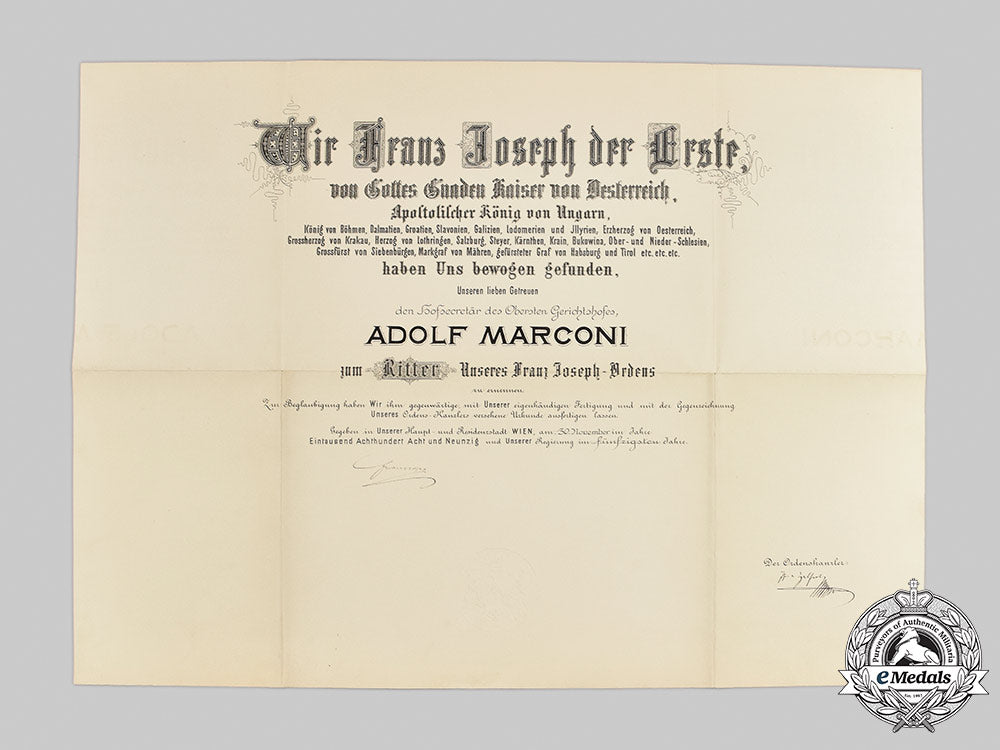 Wir Franz Joseph der Erste,
von Gottes Gnaden Kaiser von Oesterreich,
Apostolischer König von Ungarn,
König von Böhmen, Dalmatien, Croatien, Slavonien, Galizien, Lodomerien und Jllyrien, Erzherzog von Oesterreich,
Grossherzog von Krakau, Herzog von Lothringen, Salzburg, Steyer, Kärnthen, Krain, Bukowina, Ober- und Nieder-Schlesien,
Grossfürst von Siebenbürgen, Markgraf von Mähren, gefürsteter Graf von Habsburg und Tirol etc. etc. etc.
haben Uns bewogen gefunden,
Unseren lieben Getreuen
den Hofsecretär des Obersten Gerichtshofes,
ADOLF MARCONI
zum Ritter Unseres Franz Joseph-Ordens
zu ernennen.
Zur Beglaubigung haben Wir ihm gegenwärtige, mit Unserer eigenhändigen Fertigung und mit der Gegenzeichnung
Unseres Ordens-Kanzlers versehene Urkunde ausfertigen lassen.
Gegeben in Unserer Haupt- und Residenzstadt WIEN, am 30. November im Jahre
Eintausend Achthundert Acht und Neunzig und Unserer Regierung im fünfzigsten Jahre.
Der Ordenskanzler:
Purveyors of Authentic Militaria
eMedals
Est. 1967